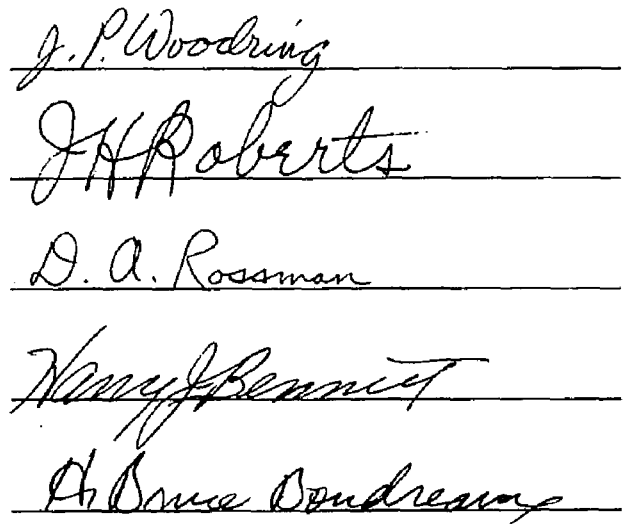 J. P. Woodring
J H Roberts
D. A. Rossman
Harry J. Bennett
H. Bruce Boudreaux